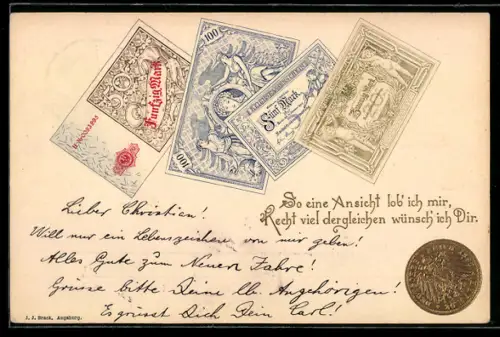 50
Fünfzig Mark
100
100
Fünf Mark
So eine Ansicht lob' ich mir,
Recht viel dergleichen wünsch' ich Dir.
Lieber Christian!
Will nur ein Lebenszeichen von mir geben!
Alles Gute zum Neuen Jahre!
Grüsse bitte Deine lb. Angehörigen!
Es grüsst Dich Dein Carl!
J. J. Brack, Augsburg.